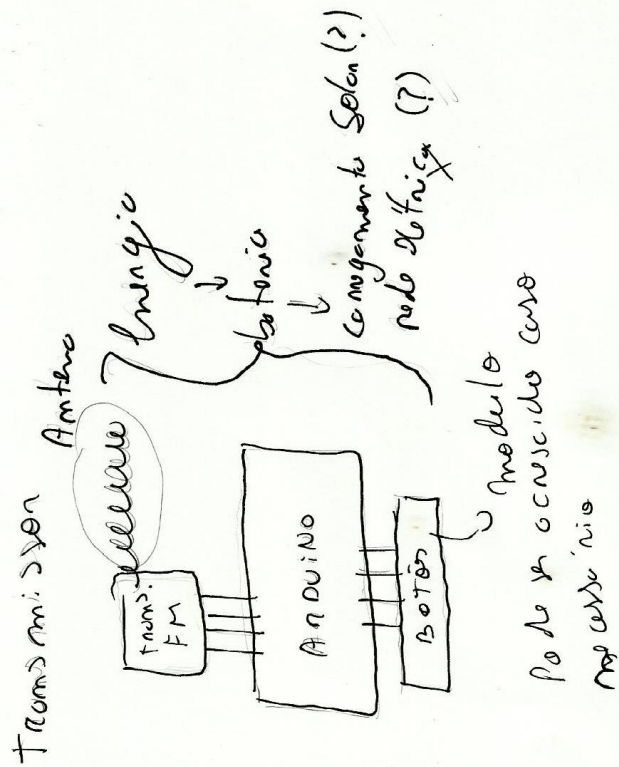 Transmissor
Antena
trans.
FM
ARDUINO
BOTÕES
Energia
↓
bateria
↓
Carregamento Solar (?)
rede elétrica (?)
modulo
Pode ser acrescido caso
necessário